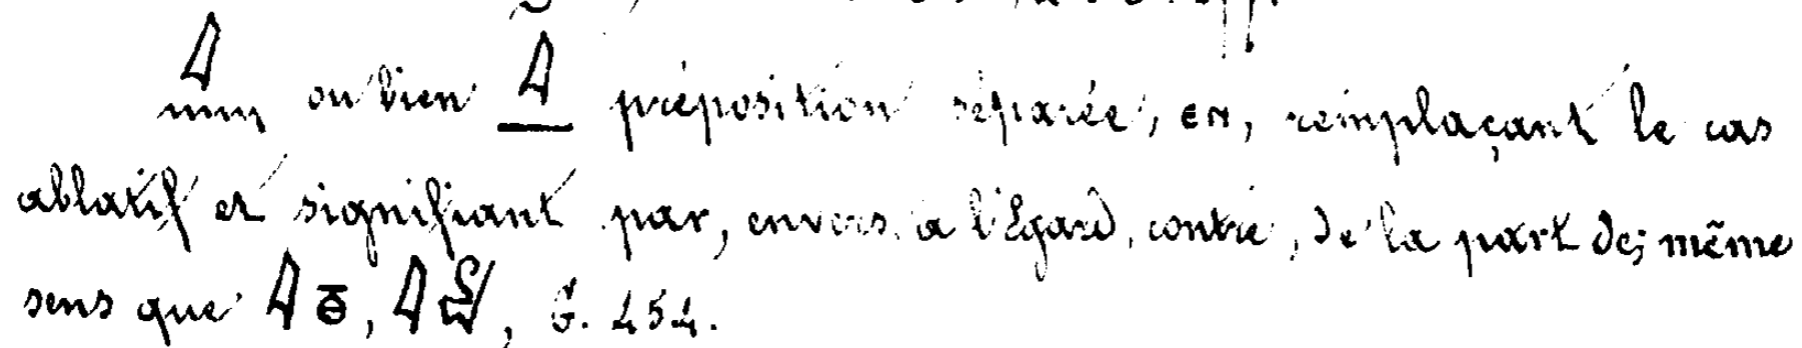 𓇋𓈖 ou bien 𓇋 préposition séparée, ⲉⲛ, remplaçant le cas
ablatif et signifiant par, envers, à l'égard, contre, de la part de; même
sens que 𓇋, 𓇋, G. 454.